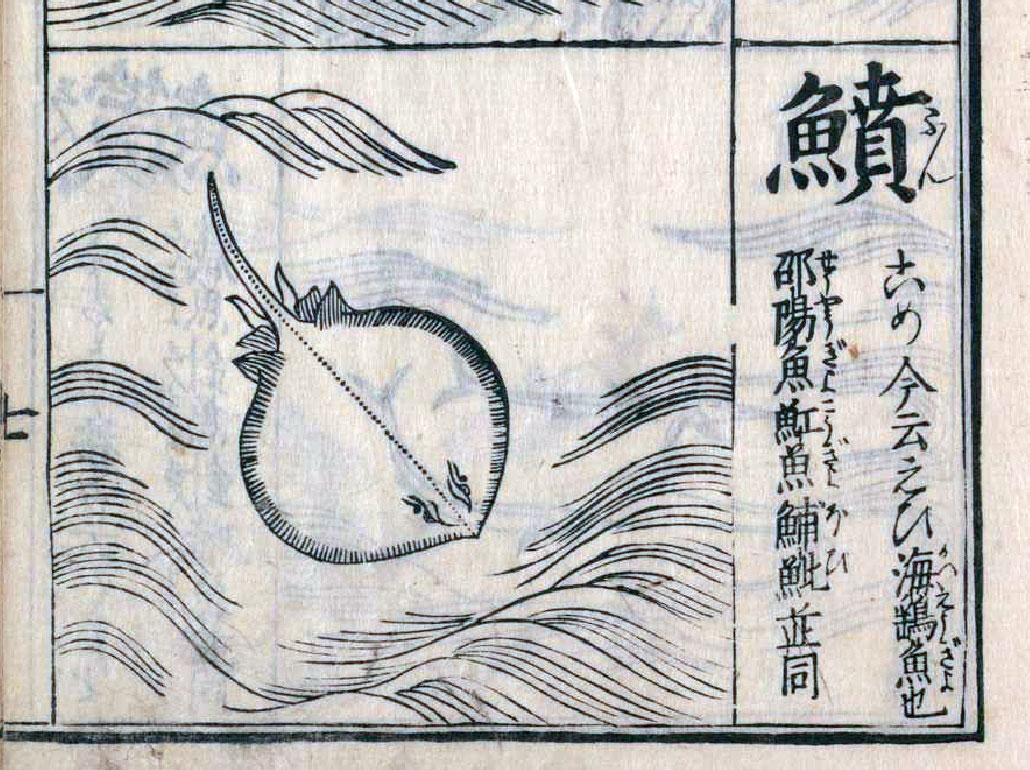 鱝
ふん
こめ今云えひ海鷂魚也
かいえうぎよ
邵陽魚魟魚鯆魮並同
せうやうぎよこうぎよほひ